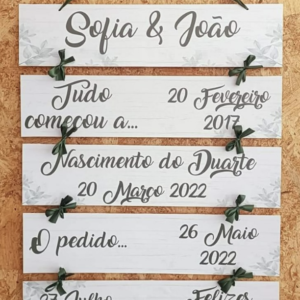 Sofia & João
Tudo 20 Fevereiro
começou a... 2017
Nascimento do Duarte
20 Março 2022
O pedido... 26 Maio
2022
27 Julho Felizes